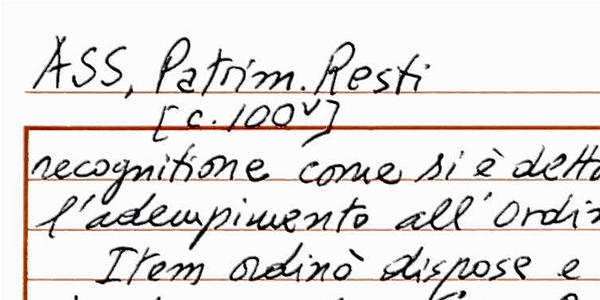 ASS, Patrim. Resti
[c. 100v]
recognitione come si è detto
l'adempimento all'Ordin
Item ordinò dispose e